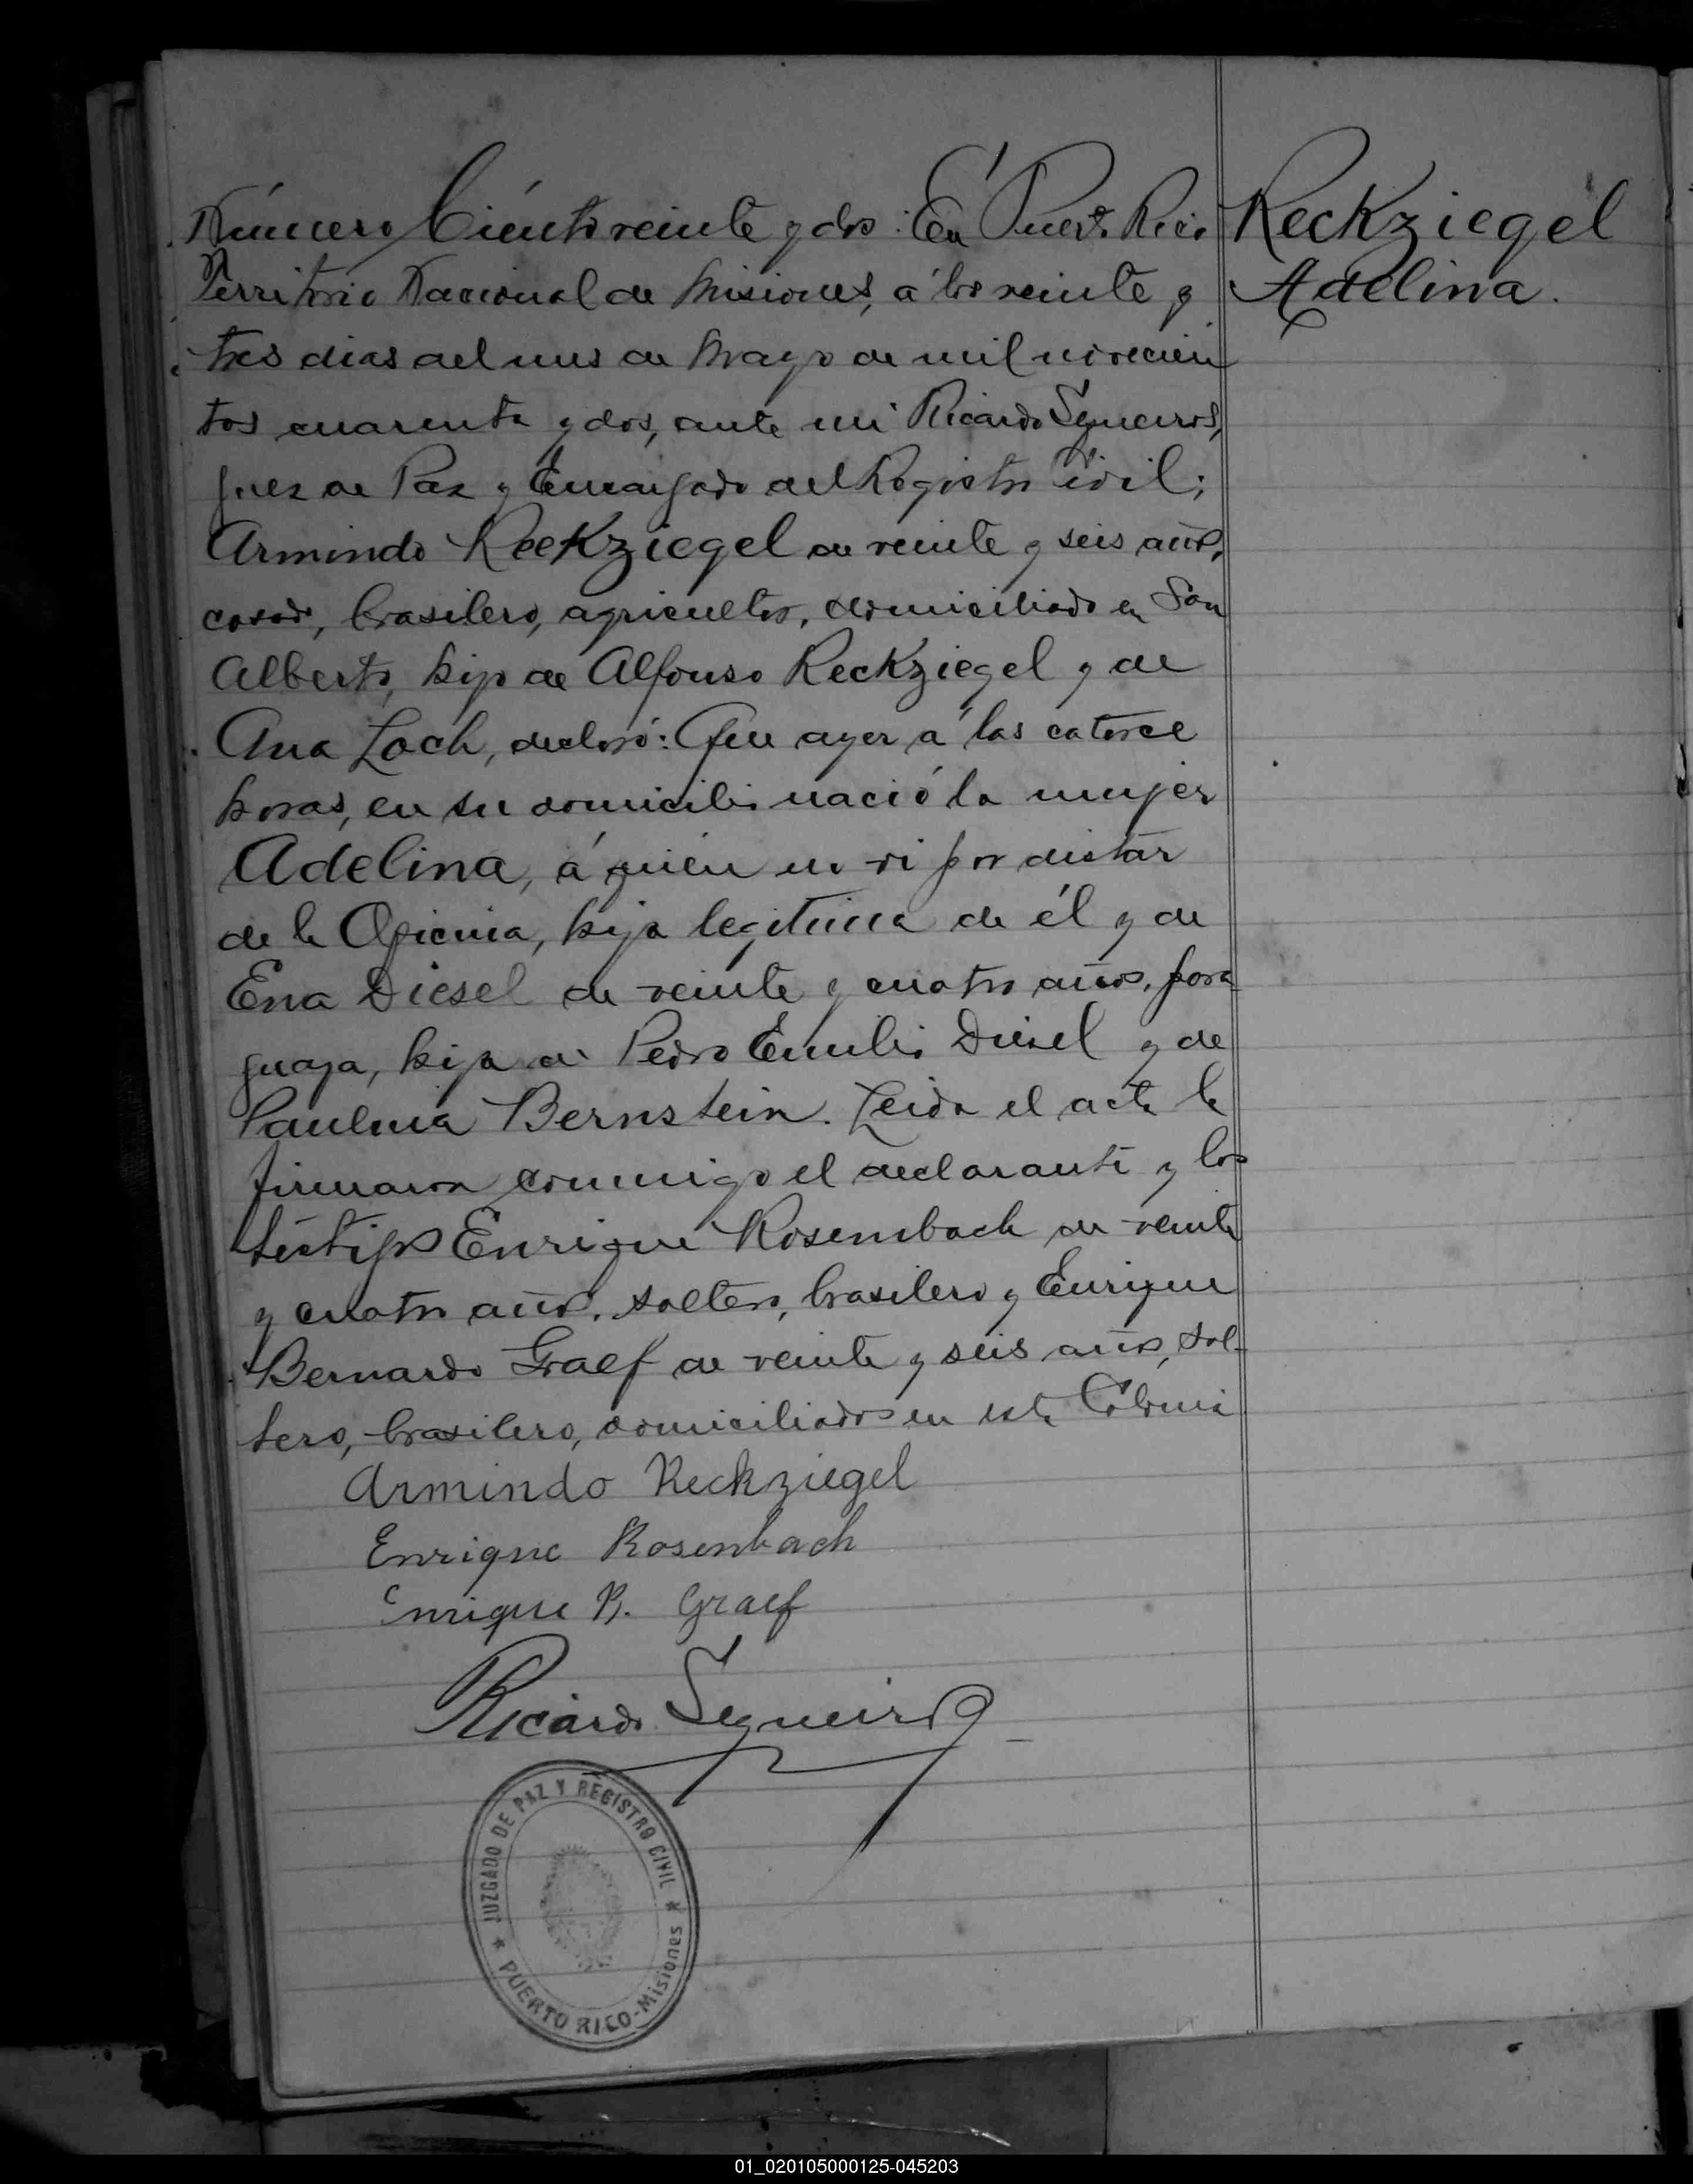 Número Ciento veinte y dos: En Puerto Rico
Territorio Nacional de Misiones, á los veinte y
tres dias del mes de Mayo de mil novecien
tos cuarenta y dos, ante mi Ricardo Sequeiros,
Juez de Paz y Encargado del Registro Civil;
Armindo Reckziegel de veinte y seis años,
casado, brasilero, agricultor, domiciliado en San
Alberto, hijo de Alfonso Reckziegel y de
Ana Loch, declaró: Que ayer á las catorce
horas, en su domicilio nació la mujer
Adelina, á quien no vi por distar
de la Oficina, hija legitima de él y de
Ena Diesel de veinte y cuatro años, para
guaya, hija de Pedro Emilio Diesel y de
Paulina Bernstein. Leida el acta la
firmaron conmigo el declarante y los
testigos Enrique Rosembach de veinte
y cuatro años, soltero, brasilero y Enrique
Bernardo Graef de veinte y seis años, sol-
tero, brasilero, domiciliados en esta Colonia
Armindo Reckziegel
Enrique Rosenbach
Enrique B. Graef
Ricardo Sequeiros
JUZGADO DE PAZ Y REGISTRO CIVIL
★ PUERTO RICO-Misiones ★
Reckziegel
Adelina.
01_020105000125-045203